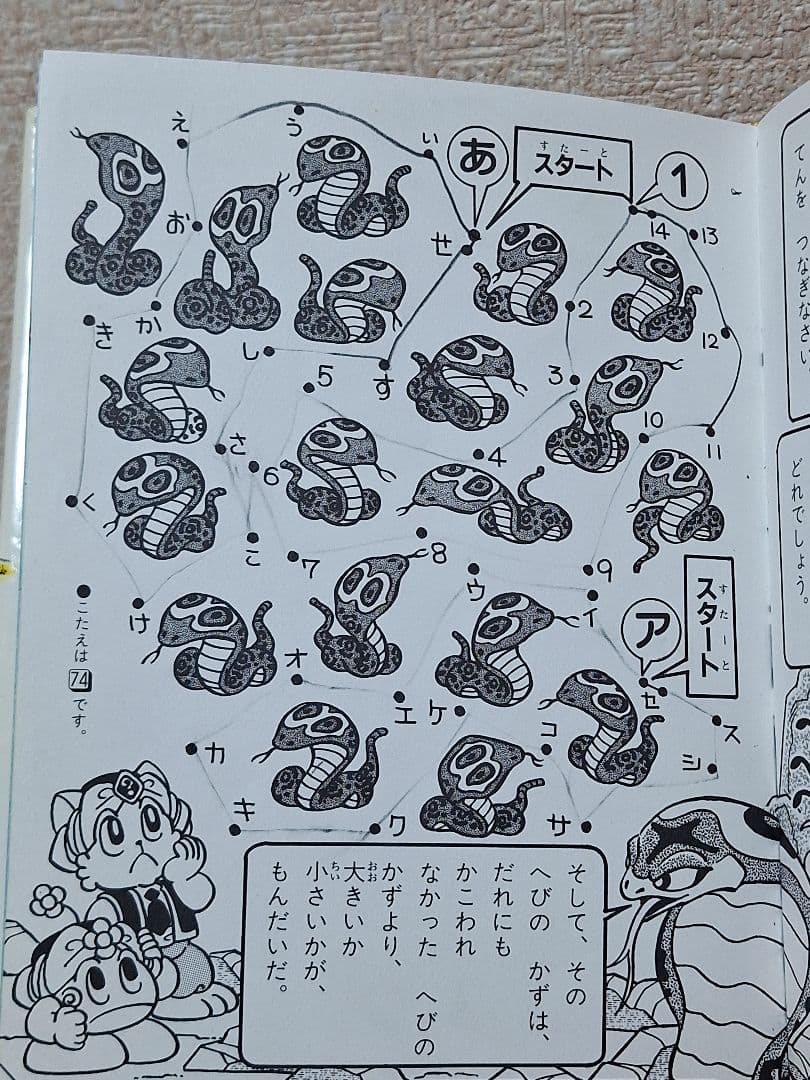 てんを つなぎなさい
どれでしょう。
すたーと
スタート
あ
い
う
え
お
か
き
く
け
こ
さ
し
す
せ
1
2
3
4
5
6
7
8
9
10
11
12
13
14
すたーと
スタート
ア
イ
ウ
エ
オ
カ
キ
ク
ケ
コ
サ
シ
ス
セ
そして、その
へびの かずは、
だれにも
かこわれ
なかった へびの
かずより、
おお
大きいか
ちい
小さいかが、
もんだいだ。
●こたえは74です。